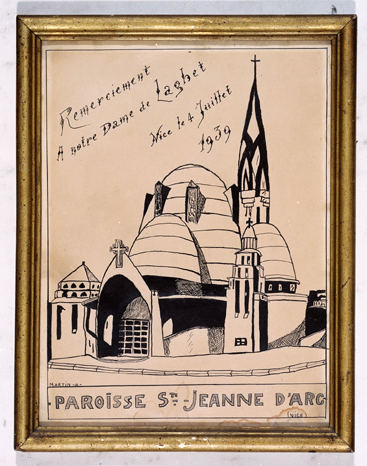 Remerciement
A notre Dame de Laghet
Nice le 4 Juillet
1939
MARTIN
PAROISSE Ste JEANNE D'ARC
NICE